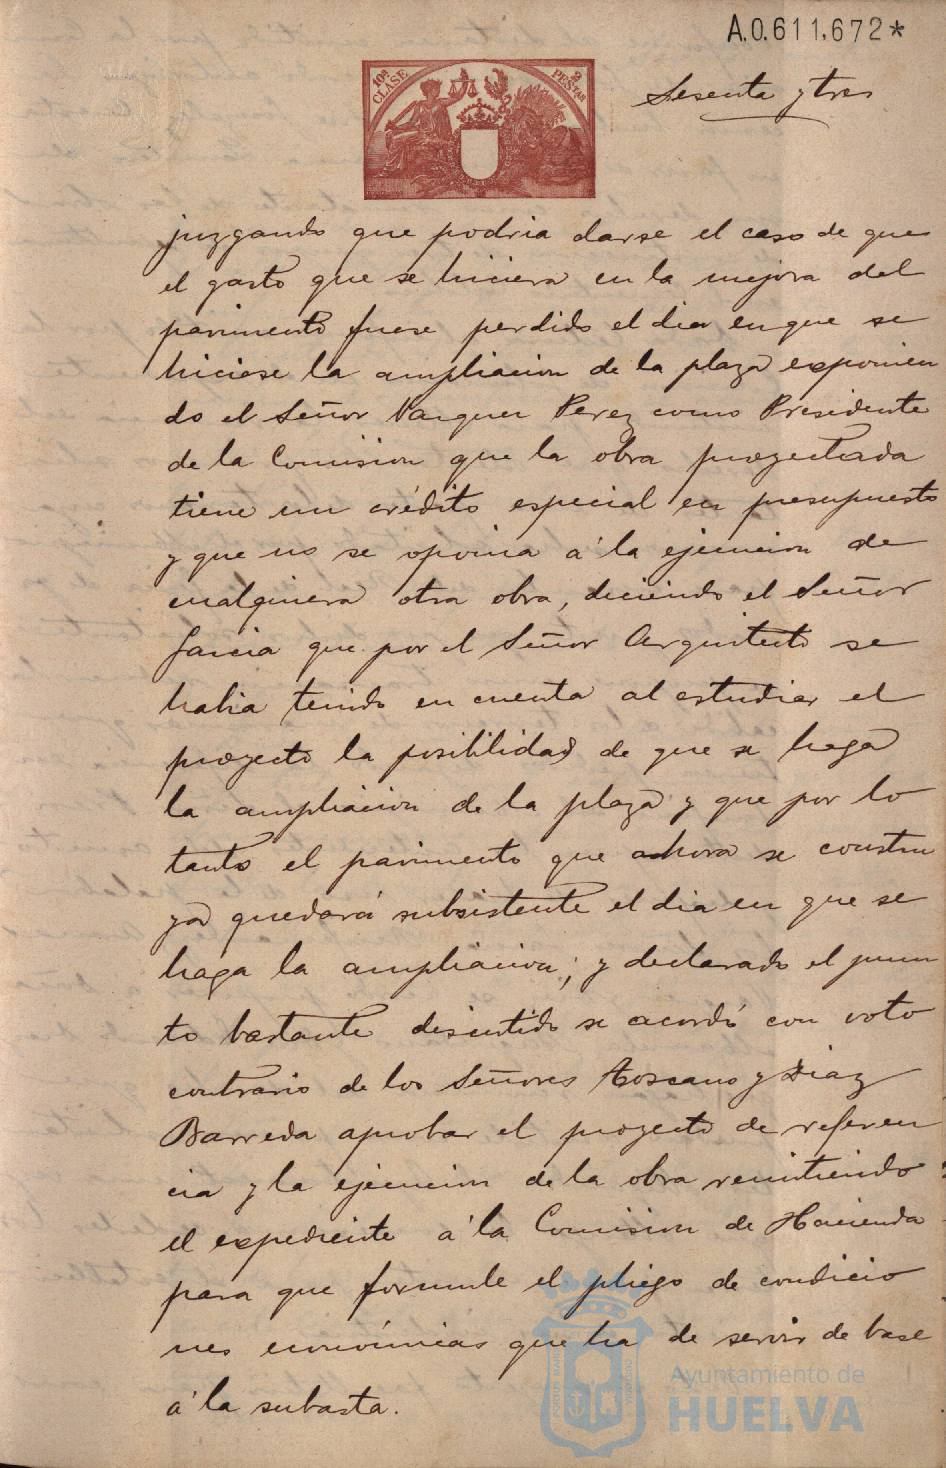 A.0.611.672*
10ª CLASE
2 PESTAS
Sesenta y tres
juzgando que podria darse el caso de que
el gasto que se hiciera en la mejora del
pavimento fuese perdido el dia en que se
hiciese la ampliacion de la plaza exponien
do el Señor Vazquez Perez como Presidente
de la Comision que la obra proyectada
tiene un crédito especial en presupuesto
y que no se oponia á la ejecucion de
cualquiera otra obra, diciendo el Señor
Garcia que por el Señor Arquitecto se
habia tenido en cuenta al estudiar el
proyecto la posibilidad de que se haga
la ampliacion de la plaza y que por lo
tanto el pavimento que ahora se constru
ya quedará subsistente el dia en que se
haga la ampliacion; y declarado el pun
to bastante discutido se acordó con voto
contrario de los Señores Toscano y Diaz
Barreda aprobar el proyecto de referen
cia y la ejecucion de la obra remitiendo
el expediente á la Comision de Hacienda
para que formule el pliego de condicio
nes económicas que ha de servir de base
á la subasta.
Ayuntamiento de
HUELVA